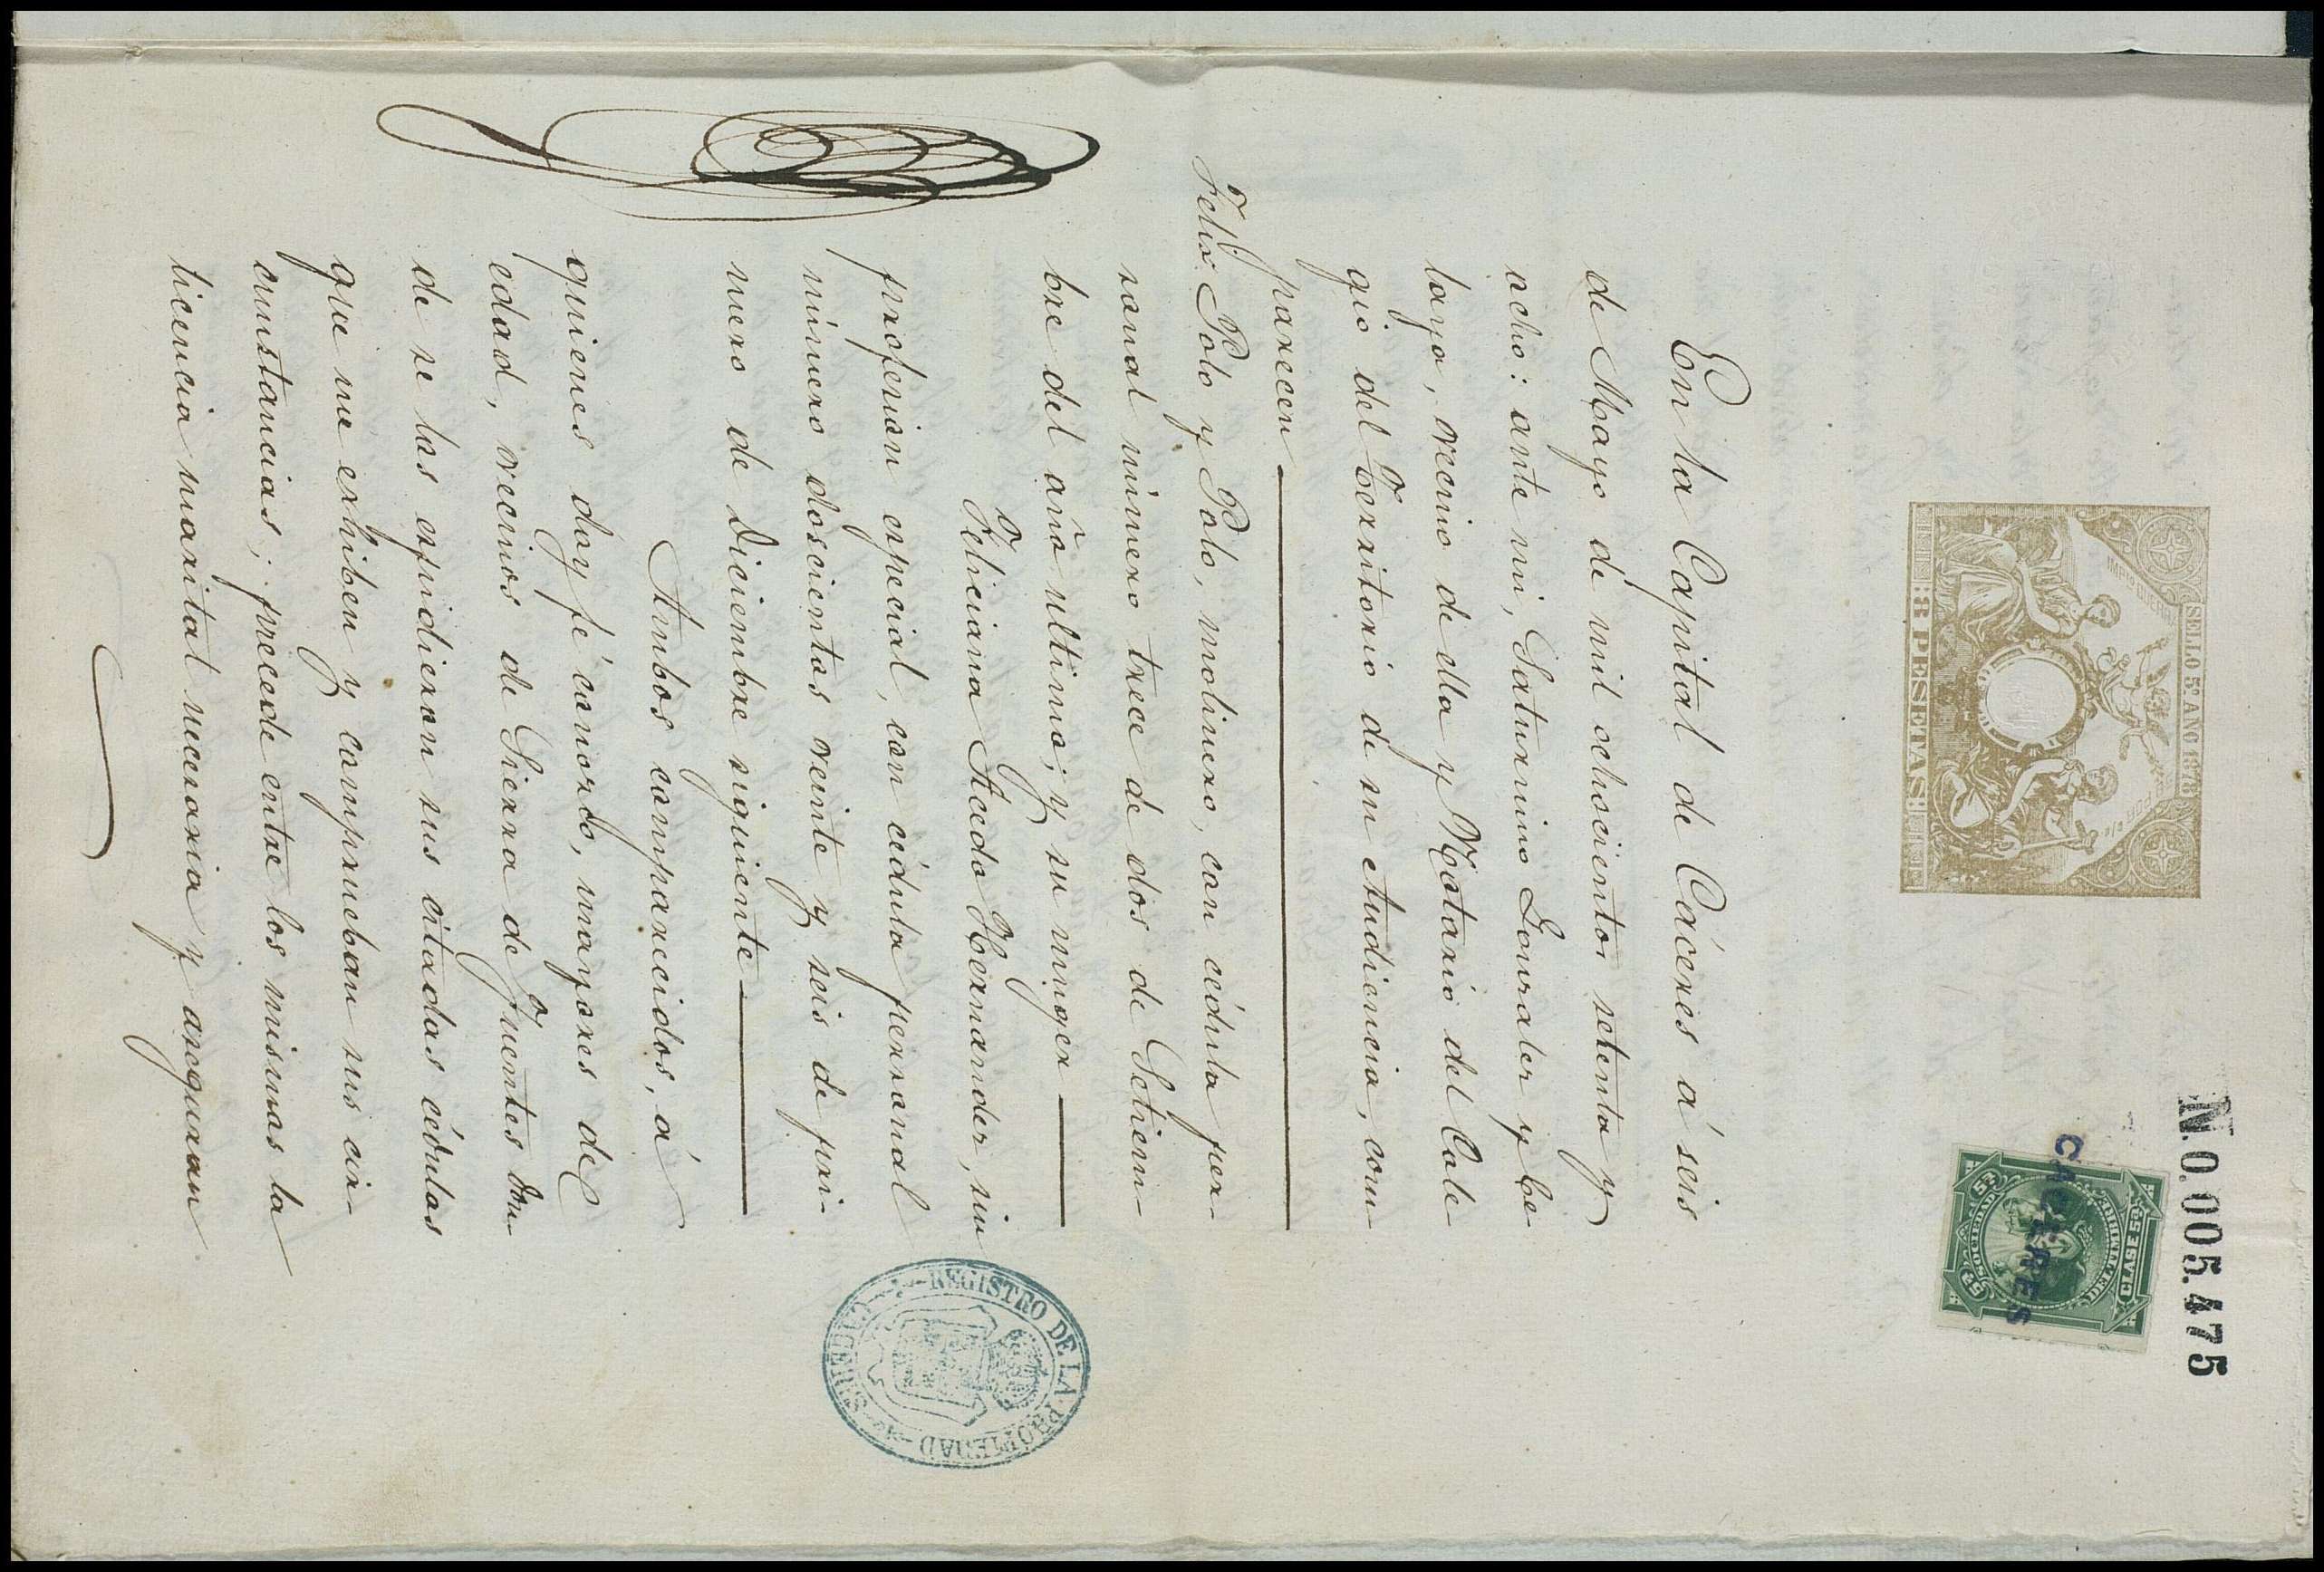 N.0.005.475
SELLO 5º AÑO 1878
IMPTO GUERRA
8 PESETAS
50 CÉNT. DE PESETA
CACERES
En la Capital de Cáceres á seis
de Mayo de mil ochocientos setenta y
ocho: ante mi, Saturnino Gonzalez y Ce-
laya, vecino de ella y Notario del Cole
gio del Territorio de su Audiencia, com
parecen
Felix Polo y Polo, molinero, con cédula per-
sonal número trece de dos de Setiem-
bre del año ultimo; y su muger
Feliciana Acedo Hernandez, sin
profesion especial, con cédula personal
número doscientos veinte y seis de pri-
mero de Diciembre siguiente
Ambos comparecidos, á
quienes doy fé conozco, mayores de
edad, vecinos de Sierra de Fuentes don-
de se les espidieron sus citadas cédulas
que me exhiben y comprueban sus cir-
cunstancias; precede entre los mismos la
licencia marital necesaria y aseguran
REGISTRO DE LA PROPIEDAD